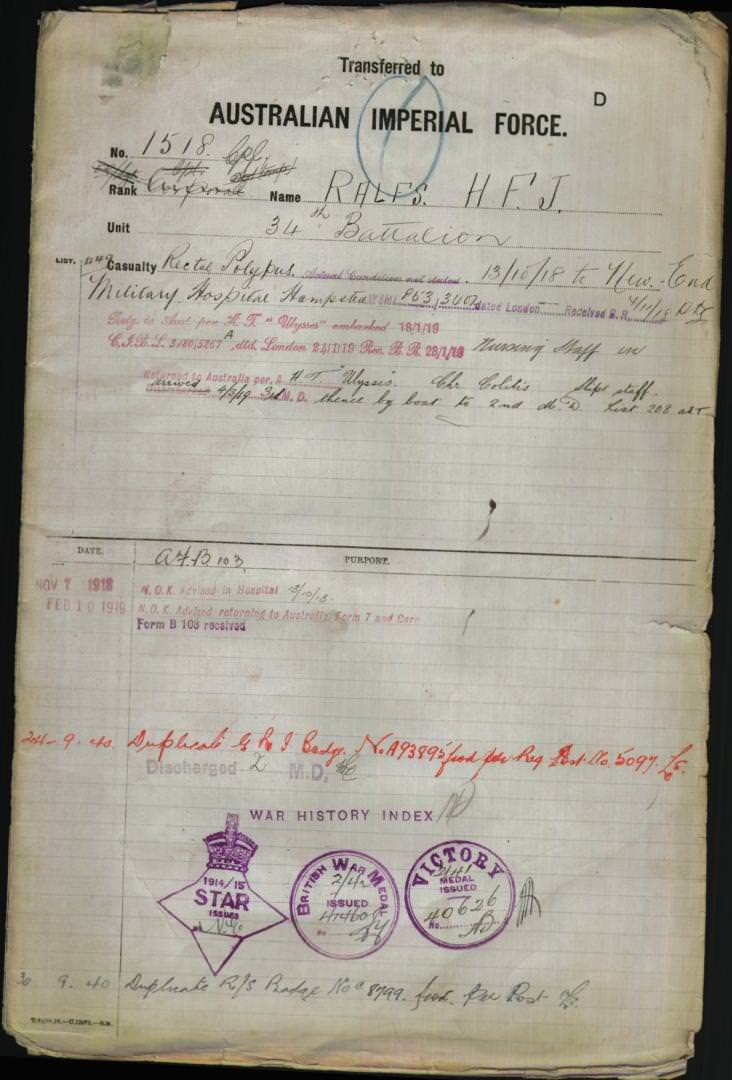 Transferred to
D
AUSTRALIAN IMPERIAL FORCE.
No. 1518. Cpl.
Rank Corporal Name RALFS. H. F. J.
Unit 34th Battalion
LIST. Casualty Rectal Polypus. Actual Condition not stated. 13/10/18 to New-End
Military Hospital Hampstead dated London Received B.R. 4/11/18
Retg to Aust per H.T. "Ulysses" embarked 18/1/19
C.I.B.L. A, dtd. London 24/1/19 Rec. B.R. 28/1/19 Nursing Staff in
Returned to Australia per. H.T. Ulysses. Chr Colitis staff.
arrived 3rd M.D. thence by boat to 2nd M.D. List 208
DATE. A.F.B 103. PURPORT.
NOV 7 1918 N.O.K. Advised in Hospital 13/10/18.
FEB 10 1919 N.O.K. Advised returning to Australia. Form 7 and Carn
Form B 103 received
24-9-40. Duplicate Badge. No A93895 fwd per Reg Post No. 5097.
Discharged 2 M.D.
WAR HISTORY INDEX
1914/15
STAR
ISSUED
BRITISH WAR MEDAL
2/42
ISSUED
No
VICTORY
2/41
MEDAL
ISSUED
No. 40626
30 9. 40 Duplicate R/S Badge No 8799. fwd. Per Post